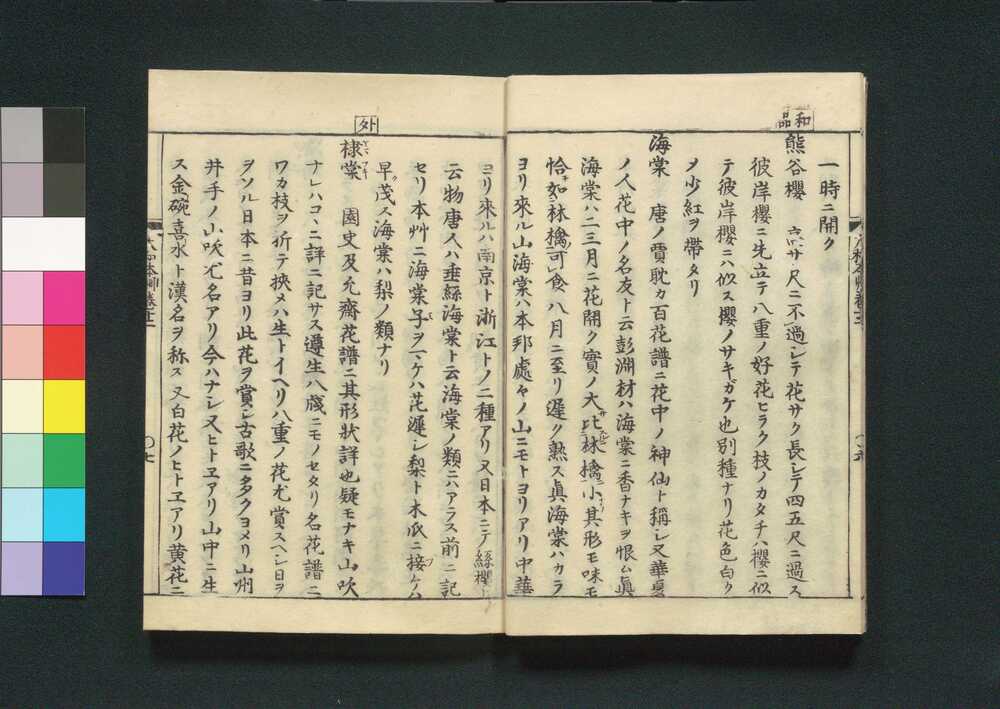 一時ニ開ク
和品
熊谷櫻 高サ尺ニ不過シテ花サク長シテ四五尺ニ過ス
彼岸櫻ニ先立テ八重ノ好花ヒラク枝ノカタチハ櫻ニ似
テ彼岸櫻ニハ似ス櫻ノサキガケ也別種ナリ花色白ク
メ少紅ヲ帶タリ
海棠 唐ノ賈耽カ百花譜ニ花中ノ神仙ト稱シ又華夏
ノ人花中ノ名友ト云彭淵材ハ海棠ニ香ナキヲ恨ム眞
海棠ハ二三月ニ花開ク實ノ大サ比林檎小其形モ味モ
恰如林檎可食八月ニ至リ遲ク熟ス眞海棠ハカラ
ヨリ來ル山海棠ハ本邦處々ノ山ニモトヨリアリ中華
ヨリ來ルハ南京ト浙江トノ二種アリ又日本ニテ絲櫻ト
云物唐人ハ垂絲海棠ト云海棠ノ類ニハアラス前ニ記
セリ本艸ニ海棠子ヲウヘケハ花遲シ梨ト木瓜ニ接ケハ
早ク茂ス海棠ハ梨ノ類ナリ
外
棣棠 園史及允齋花譜ニ其形狀詳也疑モナキ山吹
ナレハコヽニ評ニ記サス遵生八牋ニモノセタリ名花譜ニ
ワカ枝ヲ折テ挾メハ生トイヘリ八重ノ花尤賞スヘシ日ヲ
ヲソル日本ニ昔ヨリ此花ヲ賞シ古歌ニ多クヨメリ山州
井手ノ山吹尤名アリ今ハナシ又ヒトヱアリ山中ニ生
ス金碗喜水ト漢名ヲ称ス又白花ノヒトヱアリ黄花ニ